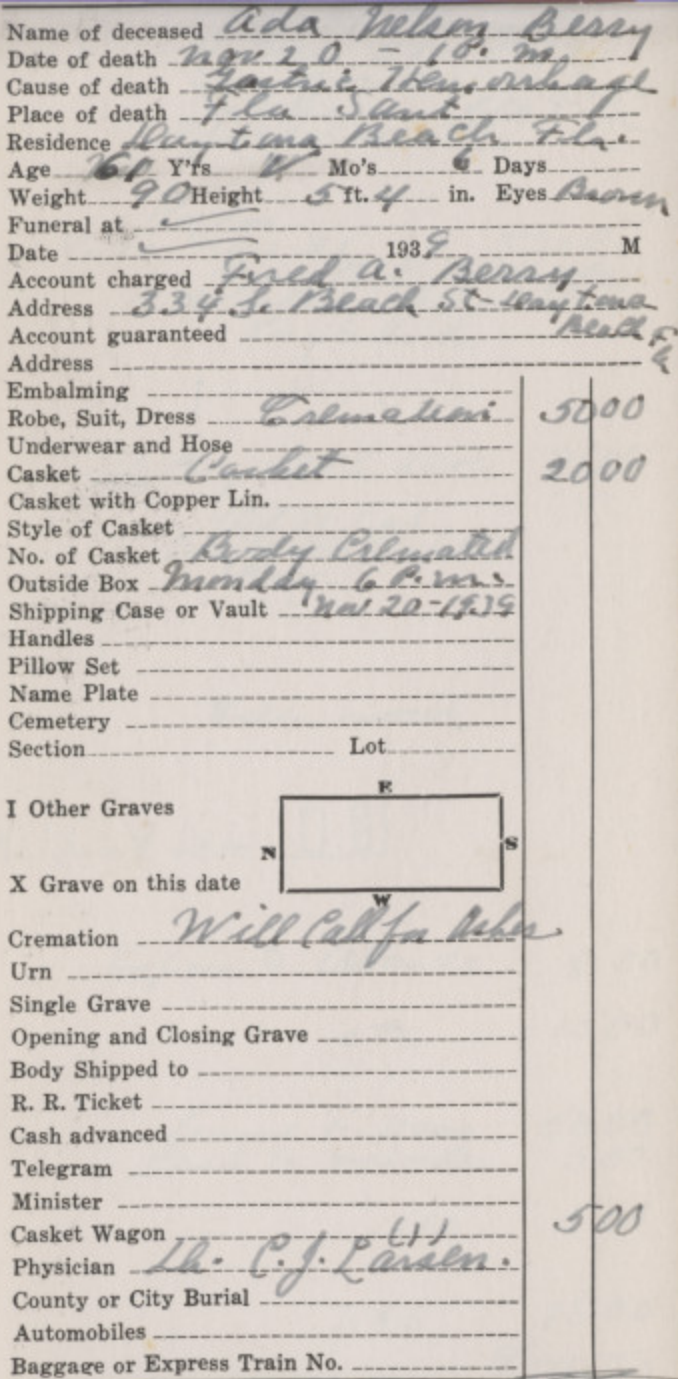 Name of deceased Ada Nelson Berry
Date of death Nov 20 - 1 P. m.
Cause of death Gastric Hemorrhage
Place of death Fla Sant
Residence Daytona Beach Fla.
Age 60 Y'rs Mo's 6 Days
Weight 90 Height 5 ft. 4 in. Eyes Brown
Funeral at
Date 1939 M
Account charged Fred A. Berry
Address 334 S. Beach St Daytona
Beach Fla
Account guaranteed
Address
Embalming
Robe, Suit, Dress Cremation 50 00
Underwear and Hose
Casket Casket 20 00
Casket with Copper Lin.
Style of Casket
No. of Casket Body Cremated
Outside Box Monday 6 P.m.
Shipping Case or Vault Nov 20-1939
Handles
Pillow Set
Name Plate
Cemetery
Section Lot
E
I Other Graves
N S
X Grave on this date
W
Cremation Will Call for Ashes
Urn
Single Grave
Opening and Closing Grave
Body Shipped to
R. R. Ticket
Cash advanced
Telegram
Minister
Casket Wagon (1) 5 00
Physician Dr. C. J. Larsen.
County or City Burial
Automobiles
Baggage or Express Train No.